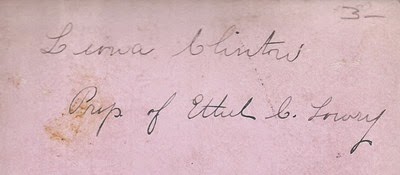 3-
Leona Clinton
Prop of Ethel C. Lowry